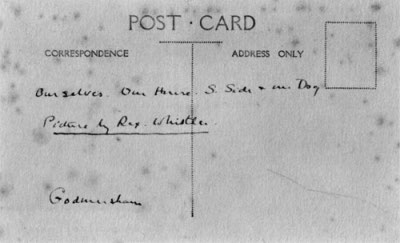 POST · CARD
CORRESPONDENCE
ADDRESS ONLY
Ourselves. Our House. S. Side & our Dog
Picture by Rex Whistler.
Godmersham